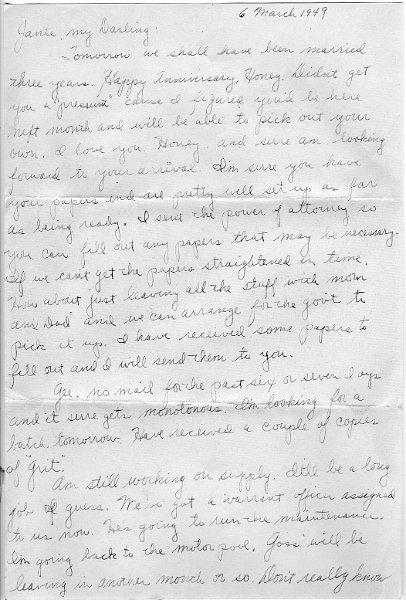 6 March 1949
Janie, my Darling:
Tomorrow we shall have been married
three years. Happy Anniversary, Honey. Didn't get
you a "pressunt" cause I figured you'd be here
next month and will be able to pick out your
own. I love you Honey and sure am looking
forward to your arrival. I'm sure you have
your papers and are pretty well set up as far
as being ready. I sent the power of attorney so
you can fill out any papers that may be necessary.
If we can't get the papers straightened in time,
How about just leaving all the stuff with mom
and Dad and we can arrange for the gov't to
pick it up. I have received some papers to
fill out and I will send them to you.
Gee, no mail for the past six or seven days
and it sure gets monotonous. I'm looking for a
batch tomorrow. Have received a couple of copies
of "Grit".
Am still working on supply. It'll be a long
job I guess. We've got a warrant officer assigned
to us now. He's going to run the maintenance.
I'm going back to the motor pool. Goss will be
leaving in another month or so. Don't really know